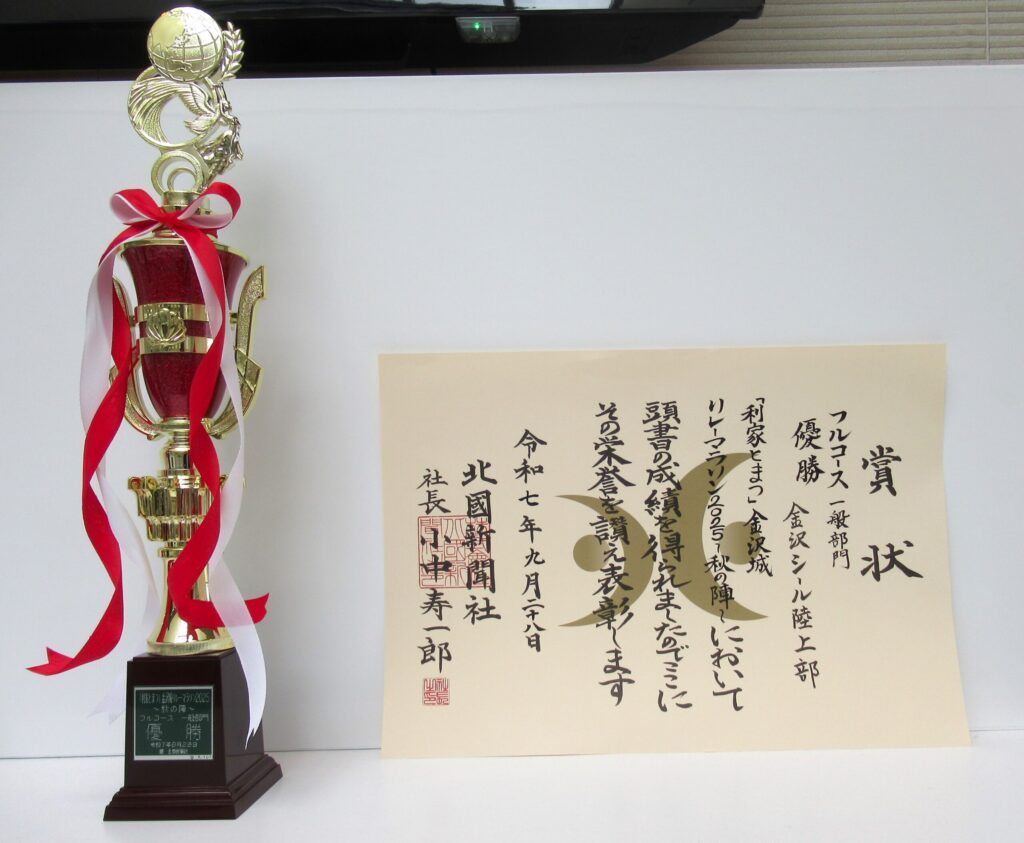 賞状
フルコース 一般部門
優勝 金沢シール陸上部
「利家とまつ」金沢城
リレーマラソン2025~秋の陣~において
頭書の成績を得られましたのでここに
その栄誉を讃え表彰します
令和七年九月二十八日
北國新聞社
社長 小中寿一郎
~秋の陣~
フルコース 一般部門
優勝
令和7年9月28日